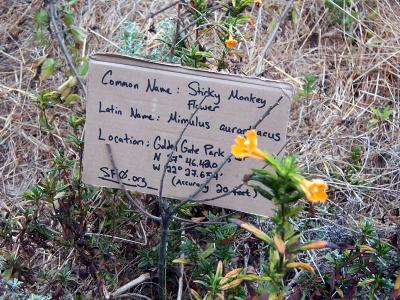 Common Name: Sticky Monkey
Flower
Latin Name: Mimulus aurantiacus
Location: Golden Gate Park
N 37° 46.420
W 122° 27.654
SFØ.org (Accuracy 20 feet)